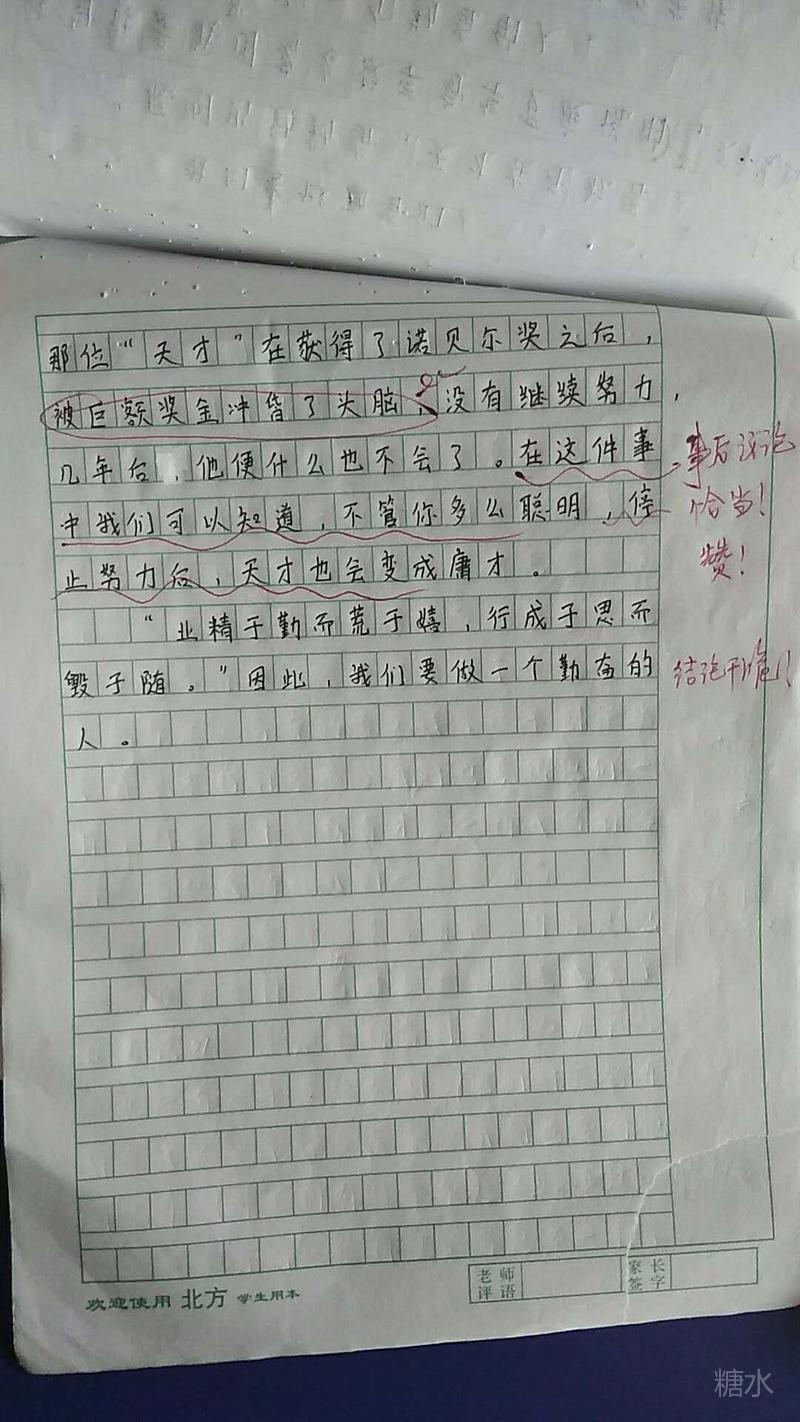 那位“天才”在获得了诺贝尔奖之后，
被巨额奖金冲昏了头脑，没有继续努力，
几年后，他便什么也不会了。在这件事
中我们可以知道，不管你多么聪明，停
止努力后，天才也会变成庸才。
“业精于勤而荒于嬉，行成于思而
毁于随。”因此，我们要做一个勤奋的
人。
事后议论
恰当！
赞！
结论干脆！
老师
评语
家长
签字
欢迎使用 北方 学生用本
糖水